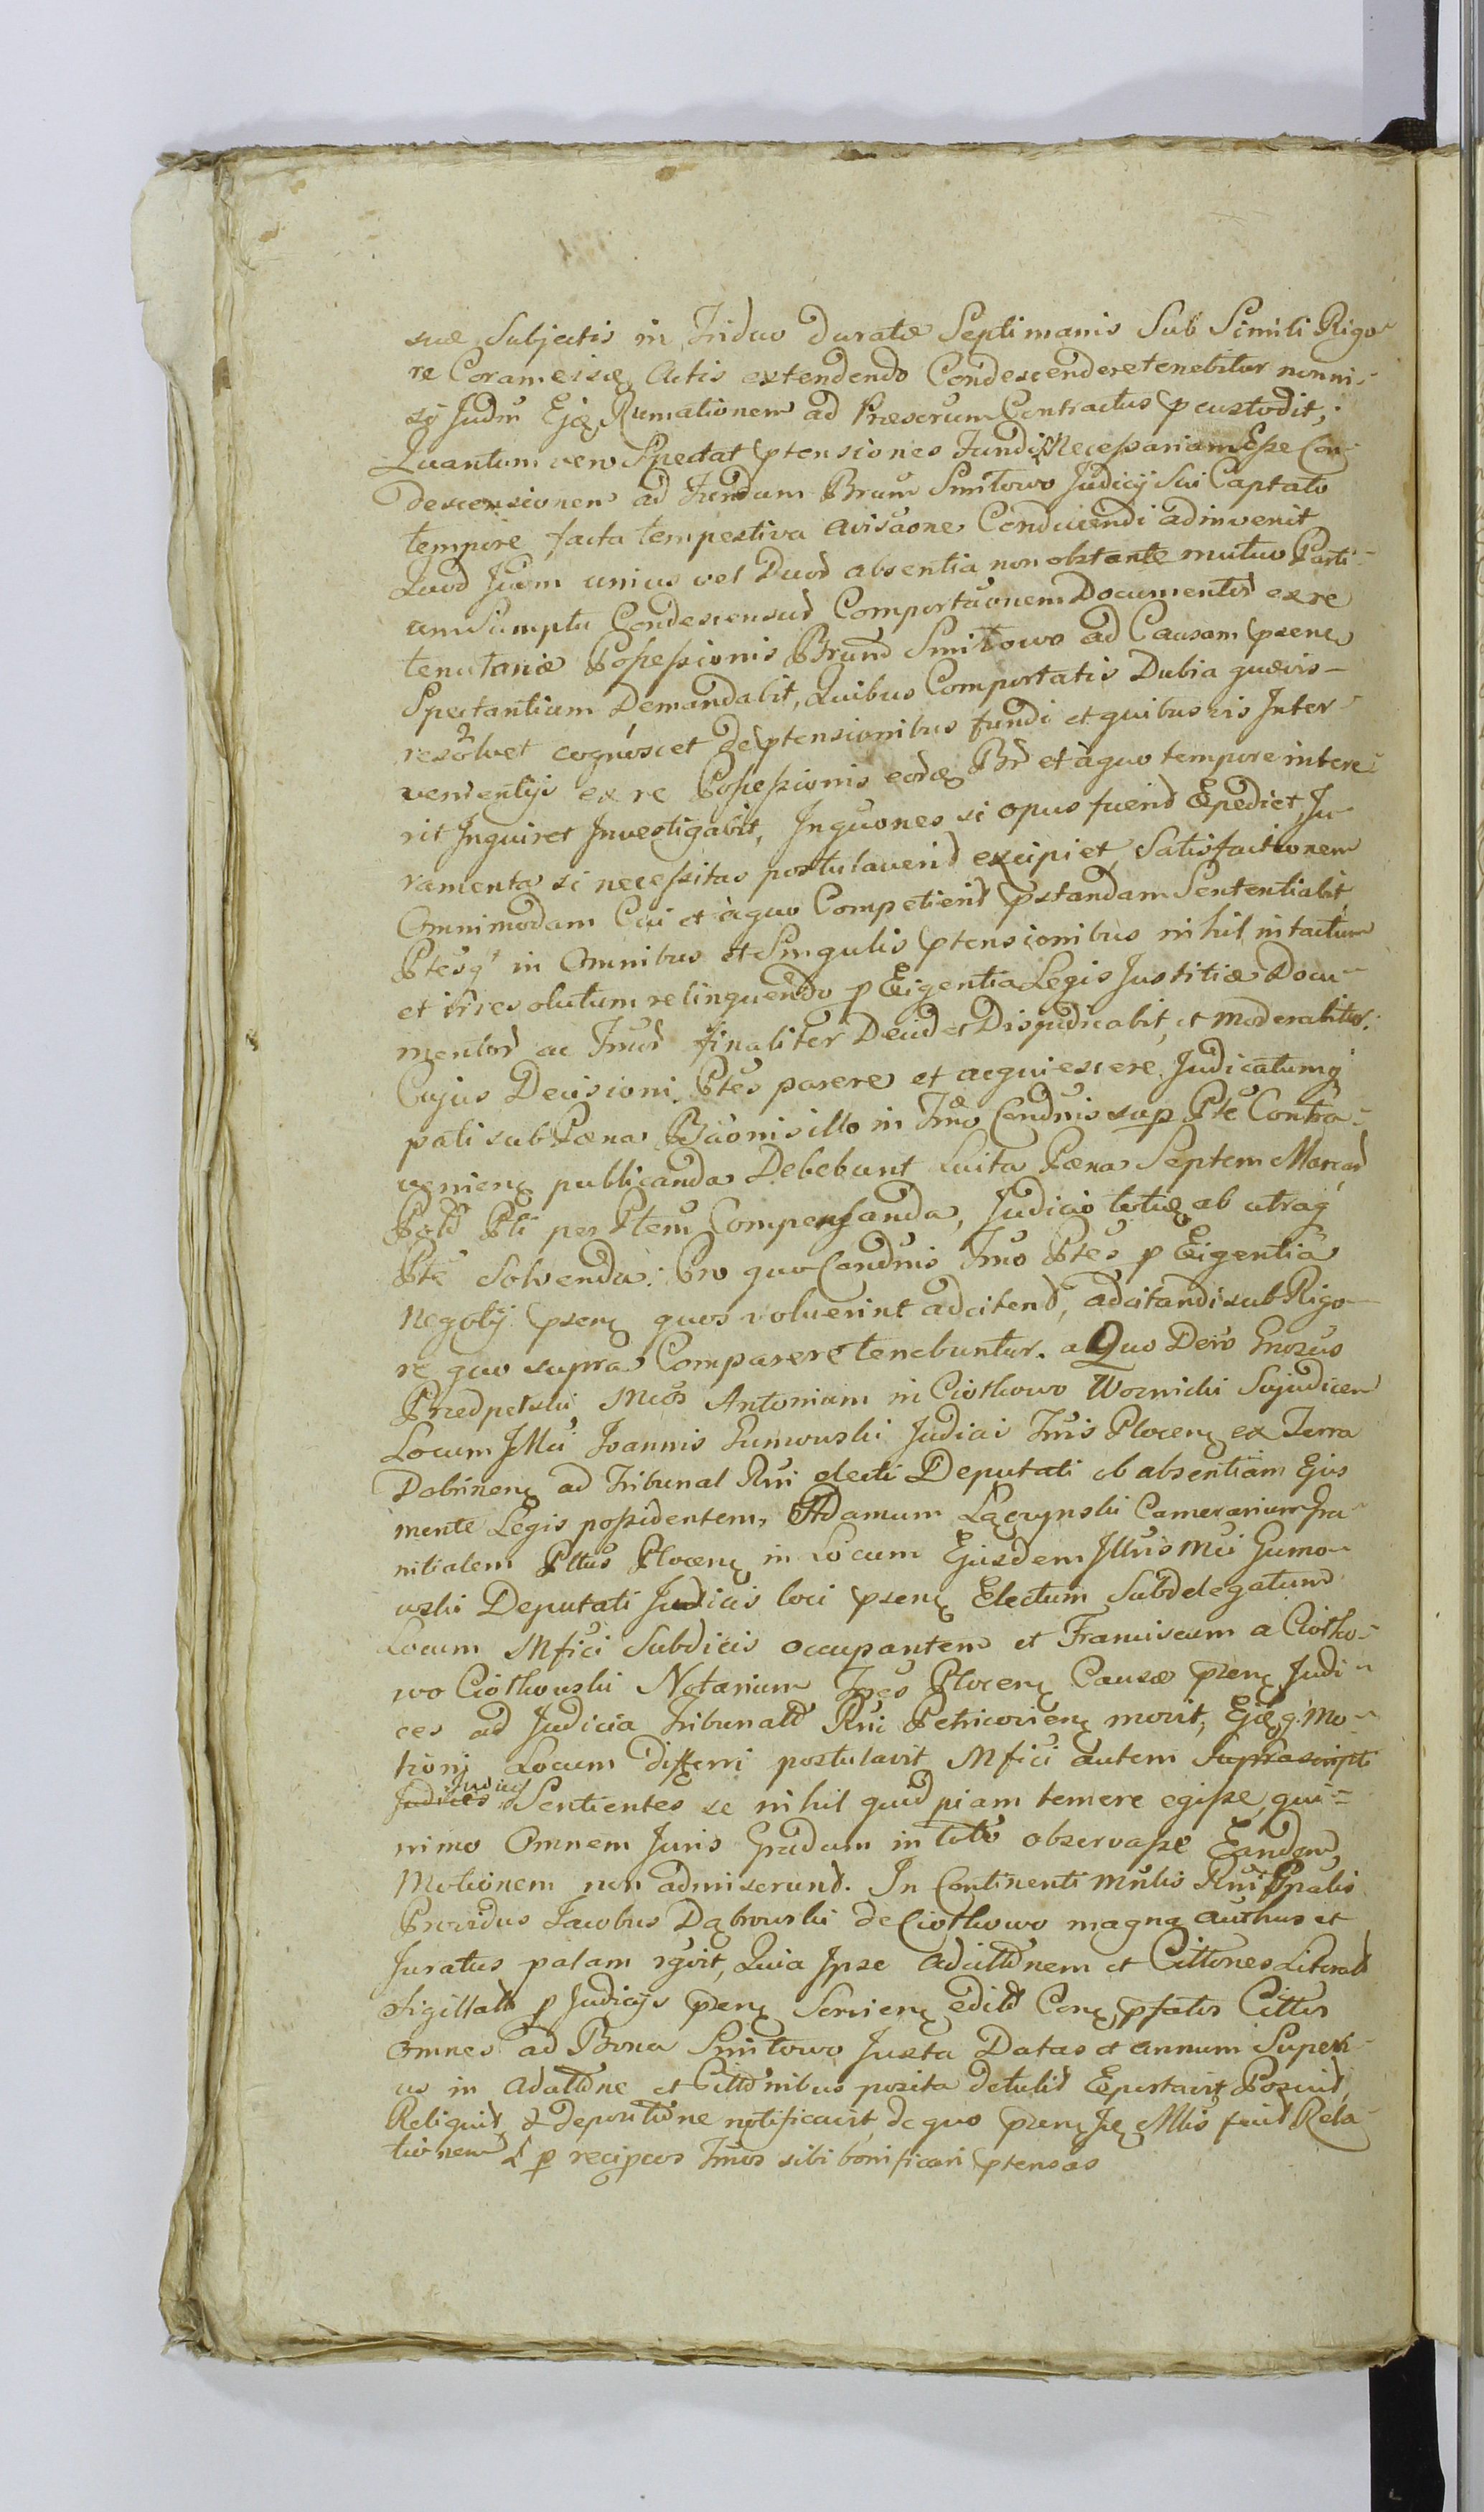 suæ Subjectis in Triduo duratæ Septimanis Sub Simili Rigo-
re Coram eisq Actis extendendo Condescendere tenebitur nonni-
si Judm Ejq Rumationem ad Præserum Contractus pcustodit;
Quantum vero Spectat ptensiones Fundi Necessariam Esse Con-
descensionem ad Fundum Brum Smitowo Judicij Sui Captato
tempore facta tempestiva avisaone Conducendi adinvenit
Quod Jum unius vel Duor absentia non obstante mutuo Parti-
um Sumptu Condescensurd Comportaonem Documentor ex re
tenutoriæ Possessionis Brund Smitowo ad Causam psene
Spectantium Demandabit, Quibus Comportatis Dubia quævis-
resolvet cognoscet de ptensionibus fundi et quibusvis Inter-
venientijs ex re Possessionis eordq Br et à quo tempore intere-
rit Inquiret Investigabit, Inquones si opus fuerid Expediet, Ju-
ramenta si necessitas postulaverid excipiet, Satisfactionem
Omnimodam Cui et à quo Competierid pstandam Sententiabit,
Ptesq in Omnibus et Singulis ptensionibus nihil intactum
et irresolutum relinquendo p Exigentia Legis Justitiæ Docu-
mentor ac Jmor finaliter Decidet Disjudicabit, et moderabitur.
Cujus Decisioni Ptes parere et acquiescere Judicatumq
pati sub Pæna Bãonis illo in Tmo Condnis sup Pte Contra-
venienq publicanda Debebunt Luita Pæna Septem Marcar
Pold Pti per Ptem Compensanda, Judicio totiq ab utraq
Pte Solvenda: Pro quo Condnis Tmo Ptes p Exigentia
Negotij psenq quos voluerint adcitend, adcitandi sub Rigo-
re quo supra Comparere tenebuntur. a Quo Dcro Gnosus
Przedpelski Mcos Antonium in Ciotkowo Woznicki Sujudicem
Locum Jllu Joannis Gumowski Judicis Tris Plocenq ex Terra
Dobrinenq ad Tribunal Rni electi Deputati ob absentiam Ejus
mente Legis possidentem, Adamum Lączynski Camerarium Gra-
nitialem Pttus Plocenq in Locum Ejusdem Jllris Mci Gumo-
wski Deputati Judicis loci psenq Electum Subdelegatum
Locum Mfici Subdicis occupantem et Franciscum a Ciotko-
wo Ciotkowski Notarium Tres Plocenq Causæ psenq Judi-
ces ad Judicia Tribunald Rni Petricovienq movit, Ejqq Mo-
tioni Locum differri postulavit Mfici autem Suprascripti
Judices Sentientes se nihil quidpiam temere egisse, qui-
nimo Omnem Juris Gradum in toto observasse Eandem
Motionem non admiserund. In Continenti Mnlis Rni Gnalis
Providus Jacobus Dąbrowski de Ciotkowo magna authus et
Juratus palam rgvit, Quia Ipse Adcittonem et Cittones Literald
Sigillatd p Judicijs psenq Servienq edità Conq pfatos Cittos
Omnes ad Bona Smitowo Juxta Datas et annum Superi-
us in Adcittone et Cittonibus posita detulit Exportavit Posuit,
Reliquit, & depositione notificavit, de quo psenq Jq Mlis fecit Rela-
tionem & p recipcos Tmos sibi bonificari ptensas